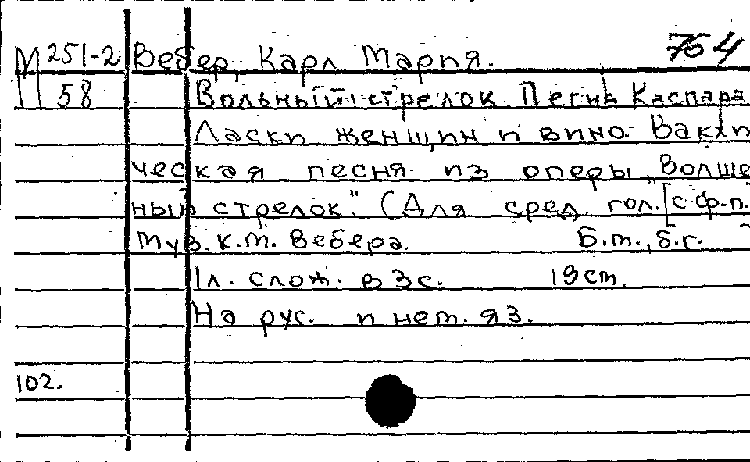 М 251-2 Вебер, Карл Мария. 764
58 Вольный стрелок Песнь Каспара
Ласки женщин и вино. Вакхи
ческая песня из оперы „Волше
ный стрелок." (Для сред. гол. [с ф-п.
Муз. К.М. Вебера. Б.м., б.г.
1л. слож. в 3с. 19 см.
На рус. и нем. яз.
102.